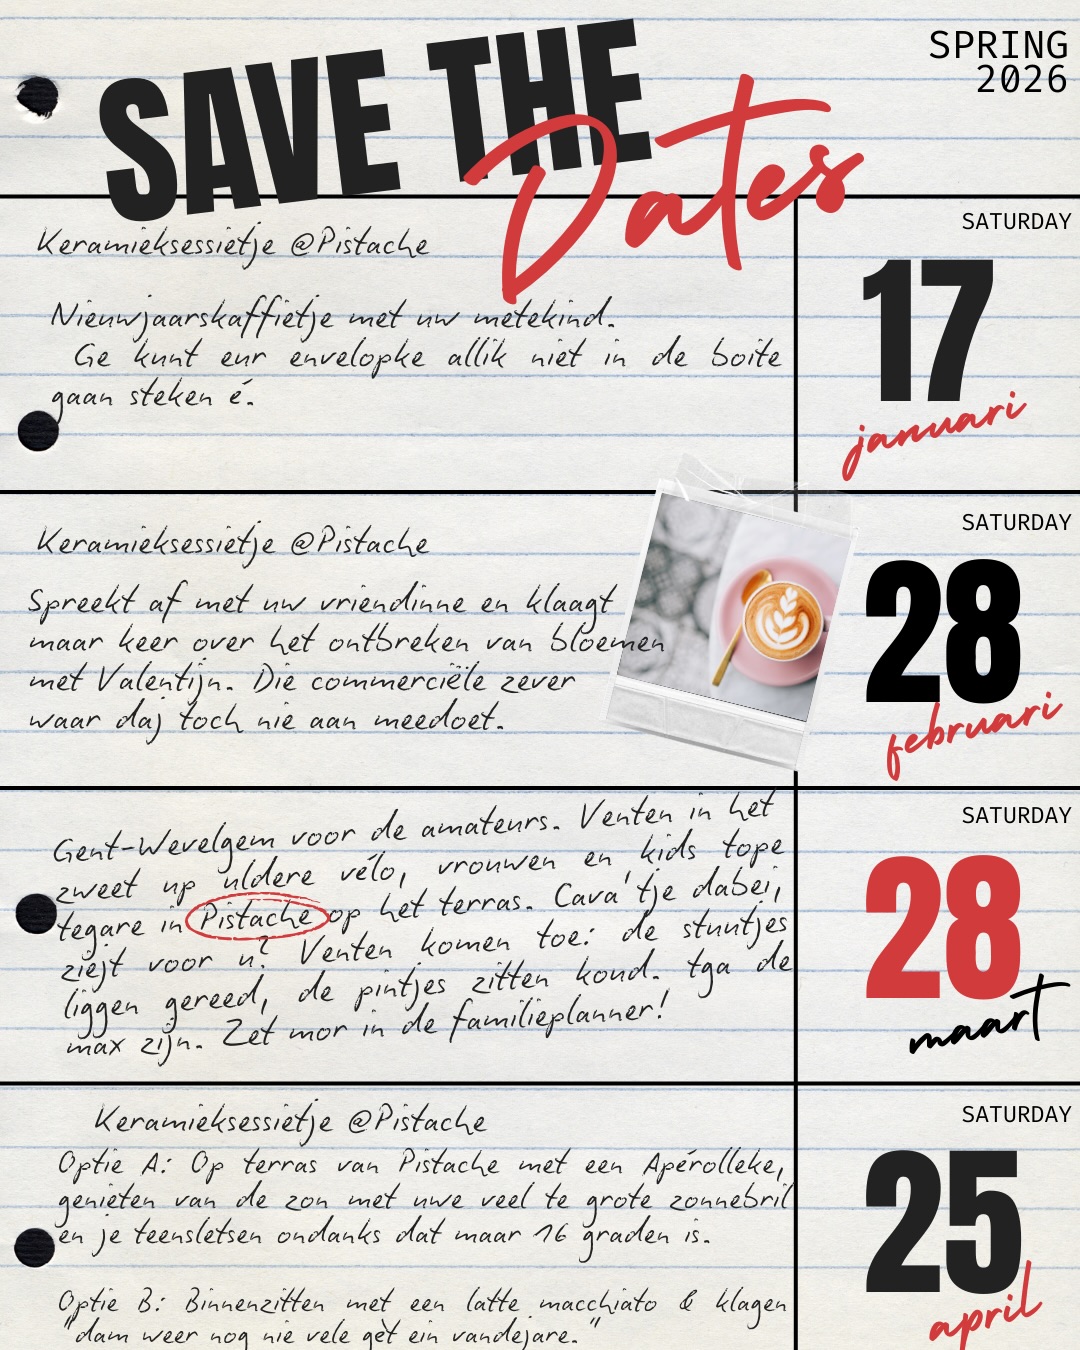 SAVE THE
Dates
SPRING
2026
Keramieksessietje @Pistache
Nieuwjaarskaffietje met uw metekind.
Ge kunt eur envelopke allik niet in de boite
gaan steken é.
SATURDAY
17
januari
Keramieksessietje @Pistache
Spreekt af met uw vriendinne en klaagt
maar keer over het ontbreken van bloemen
met Valentijn. Die commerciële zever
waar daj toch nie aan meedoet.
SATURDAY
28
februari
Gent-Wevelgem voor de amateurs. Venten in het
zweet up uldere vélo, vrouwen en kids tope
tegare in Pistache op het terras. Cava'tje dabei,
ziejt voor u? Venten komen toe: de stuutjes
liggen gereed, de pintjes zitten koud. tga de
max zijn. Zet mor in de familieplanner!
SATURDAY
28
maart
Keramieksessietje @Pistache
Optie A: Op terras van Pistache met een Apérolleke,
genieten van de zon met uwe veel te grote zonnebril
en je teensletsen ondanks dat maar 16 graden is.
Optie B: Binnenzitten met een latte macchiato & klagen
"dam weer nog nie vele gèt ein vandejare."
SATURDAY
25
april